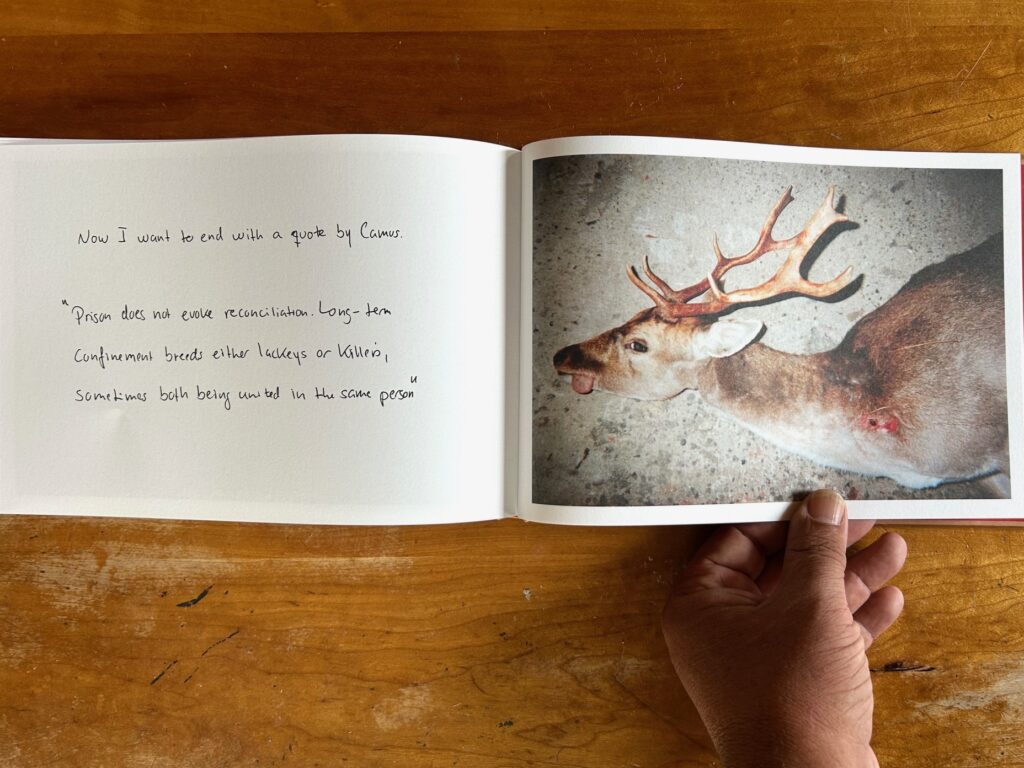 Now I want to end with a quote by Camus.
"Prison does not evoke reconciliation. Long-term
Confinement breeds either lackeys or killers,
sometimes both being united in the same person"